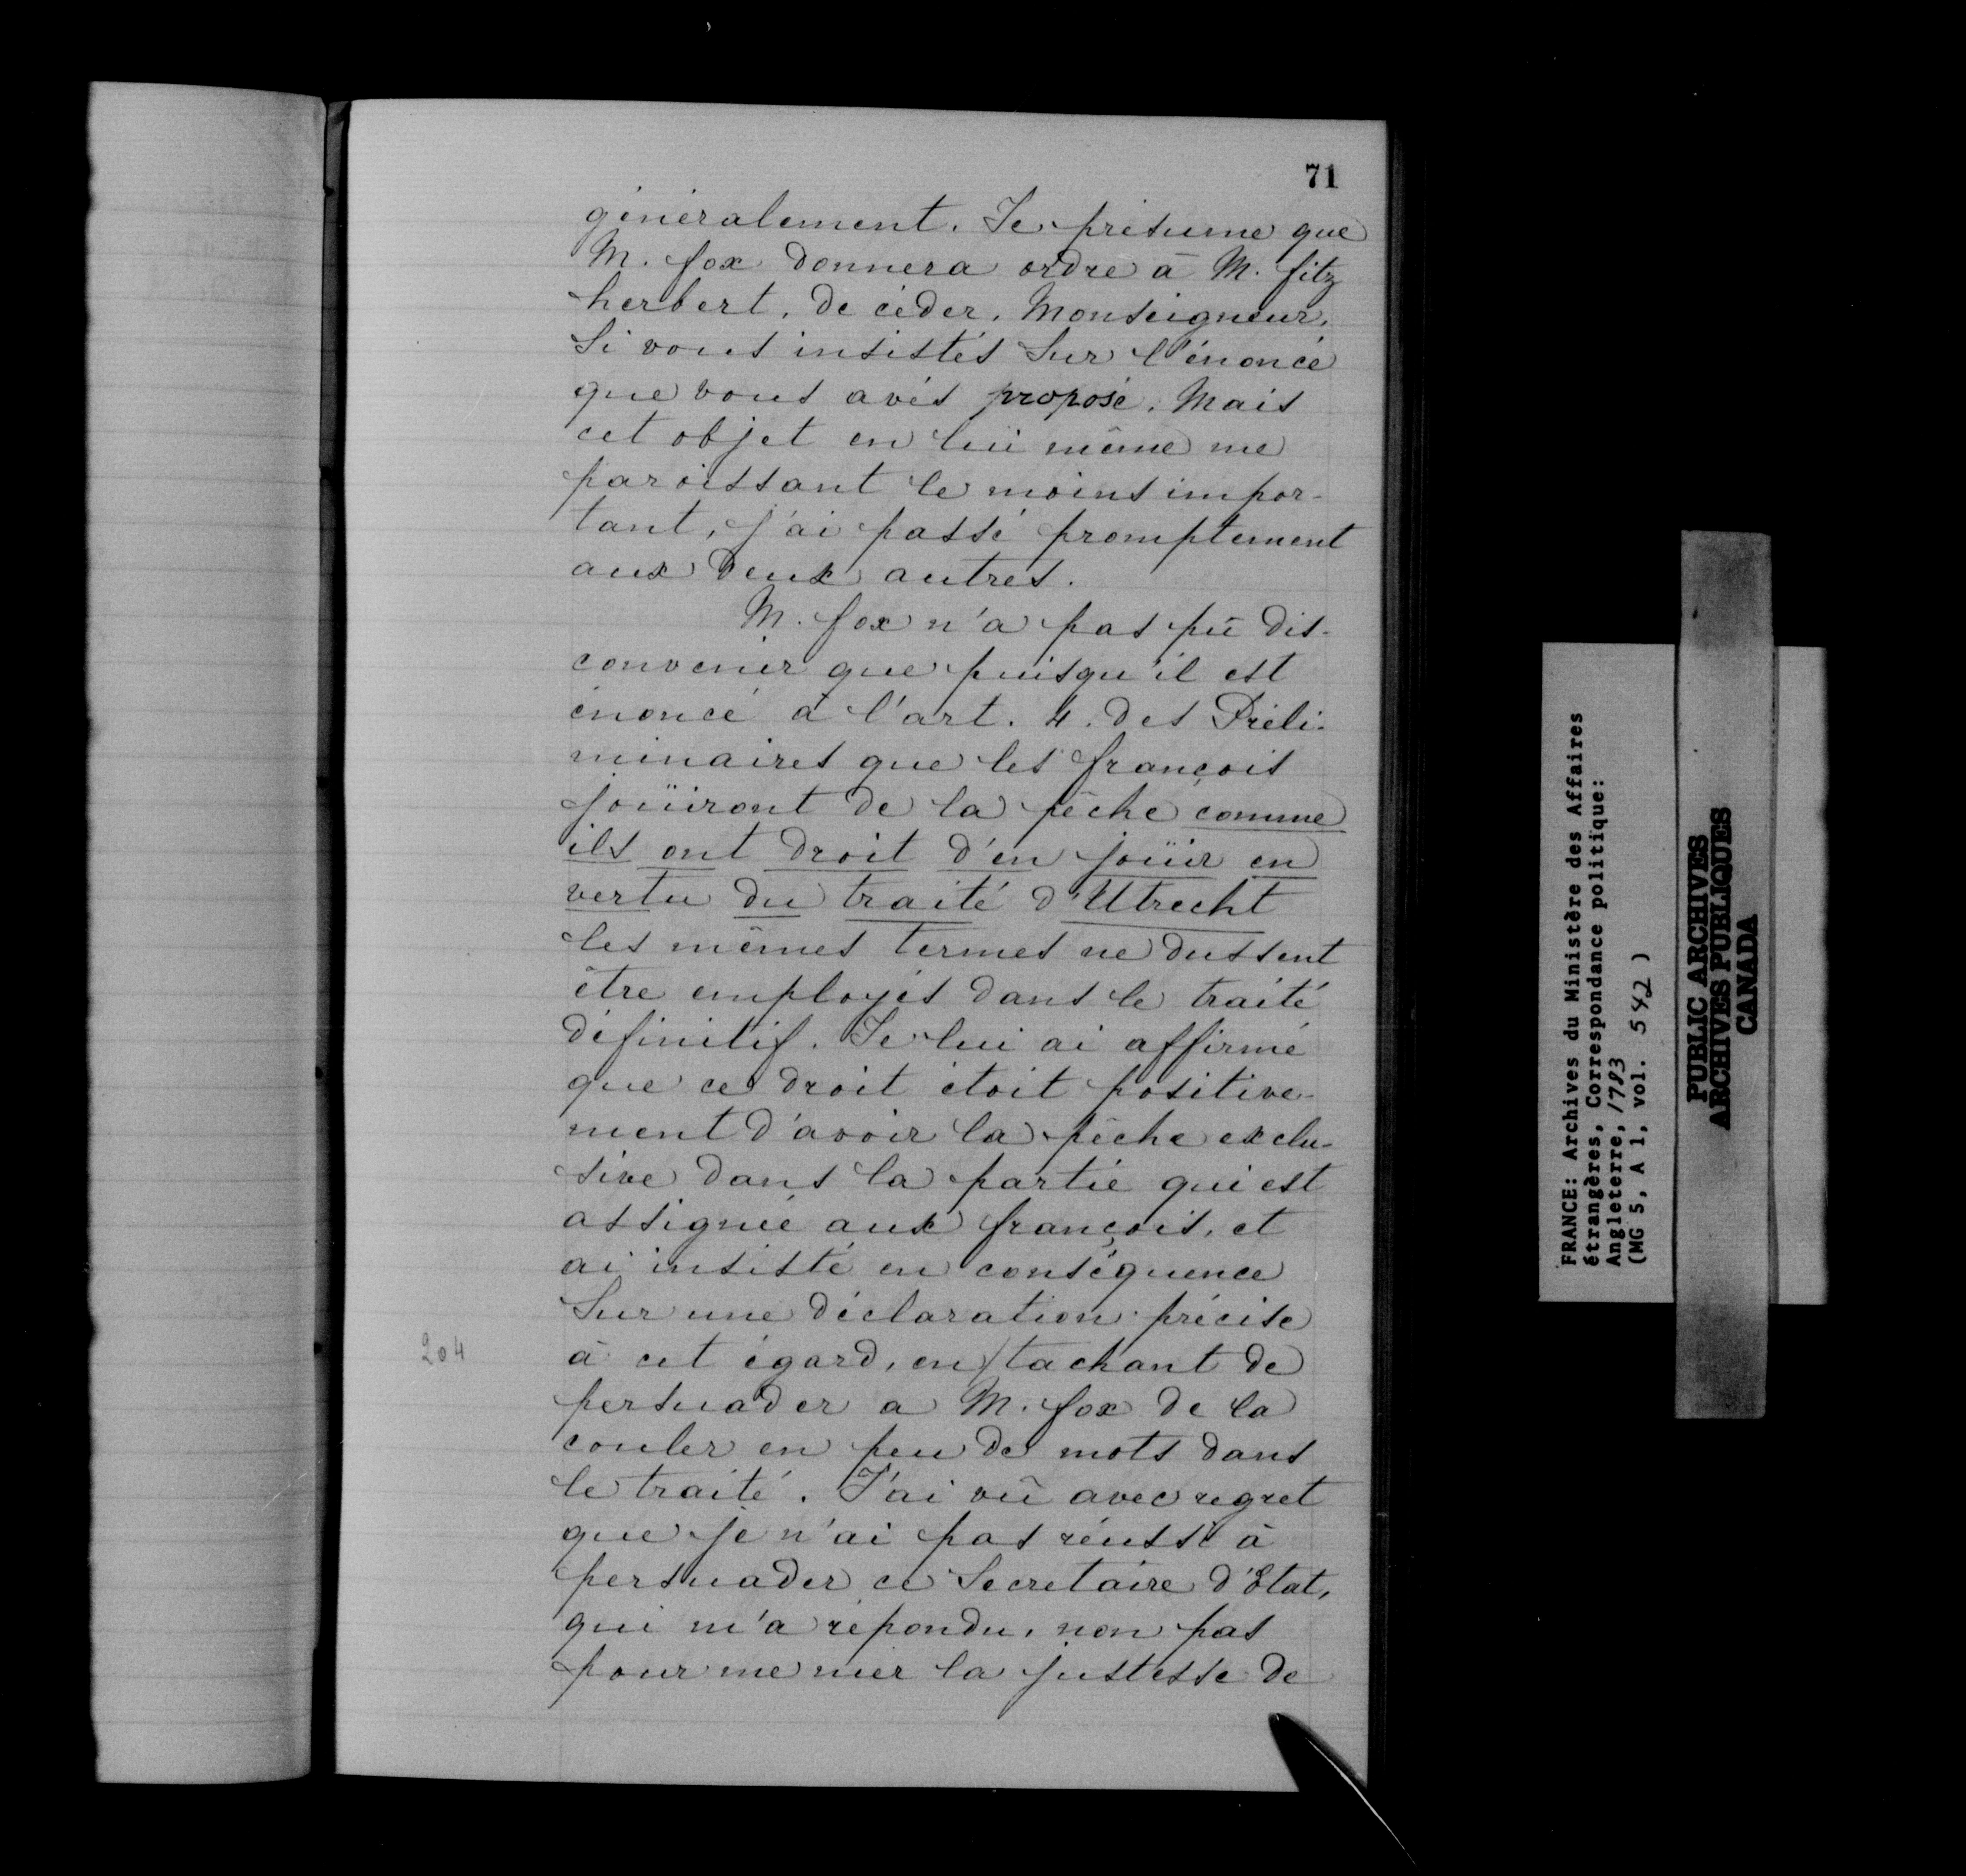 71
généralement. Je présume que
M. fox donnera ordre à M. fitz
herbert, de céder, Monseigneur,
Si vous insistés Sur l'énoncé
que vous avés proposé. Mais
cet objet en lui même me
paroissant le moins impor-
tant, j'ai passé promptement
aux deux autres.
M. fox n'a pas pû dis-
convenir que puisqu'il est
énoncé à l'art. 4. des Préli-
minaires que les françois
joüiront de la pêche comme
ils ont droit d'en joüir en
vertu du traité d'Utrecht
les mêmes termes ne dussent
être employés dans le traité
définitif. Je lui ai affirmé
que ce droit étoit positive-
ment d'avoir la pêche exclu-
sive dans la partie qui est
assignée aux françois, et
ai insisté en conséquence
Sur une déclaration précise
204
à cet égard, en tachant de
persuader a M. fox de la
couler en peu de mots dans
le traité. J'ai vû avec regret
que je n'ai pas réussi à
persuader ce Secretaire d'Etat,
qui m'a répondu, non pas
pour me nier la justesse de
FRANCE: Archives du Ministère des Affaires
étrangères, Correspondance politique:
Angleterre, 1783
(MG 5, A 1, vol. 542 )
PUBLIC ARCHIVES
ARCHIVES PUBLIQUES
CANADA